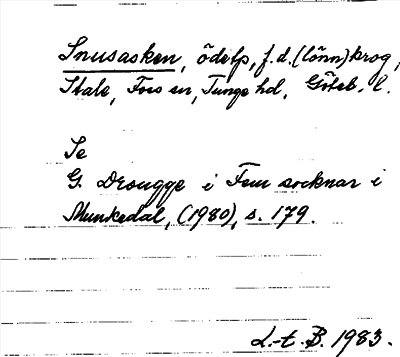 Snusasken, ödetp, f.d. (lönn)krog,
Stale, Foss sn, Tunge hd, Göteb. l.
Se
G. Drougge i Fem socknar i
Munkedal, (1980), s. 179.
L.-t. B. 1983.